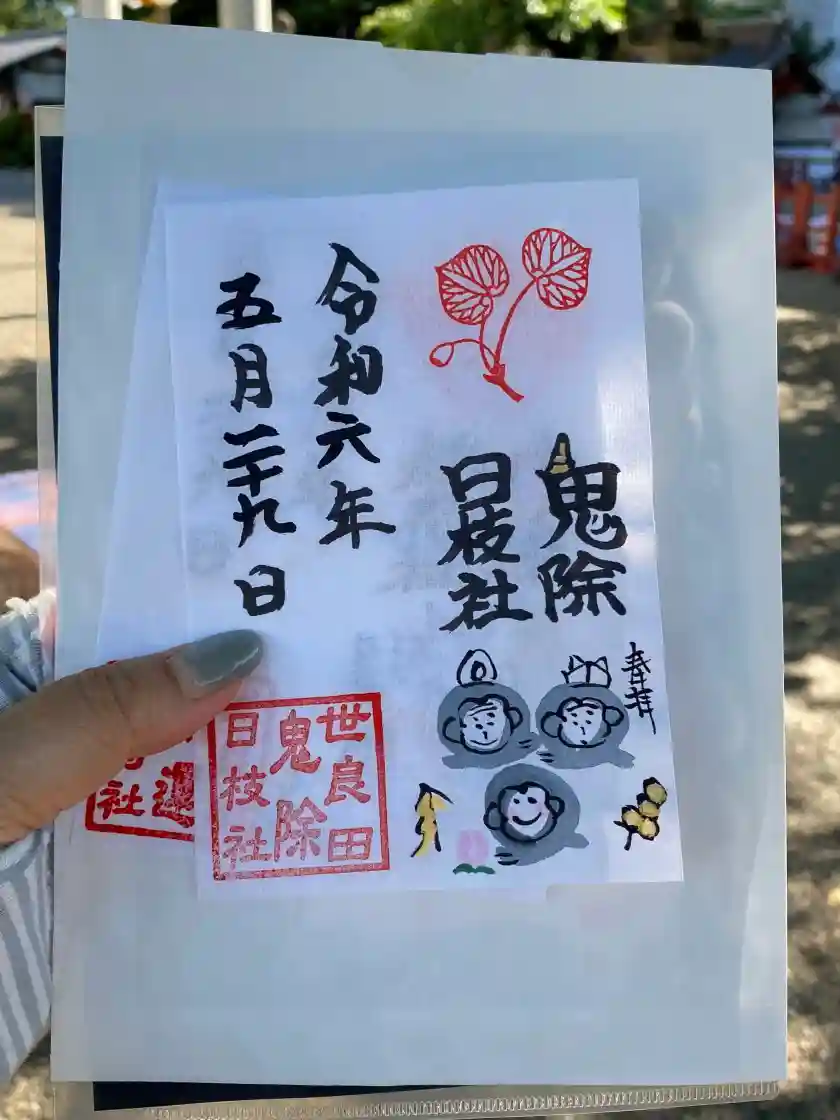 奉拝
鬼除
日枝社
令和六年
五月二十九日
世良田
鬼除
日枝社